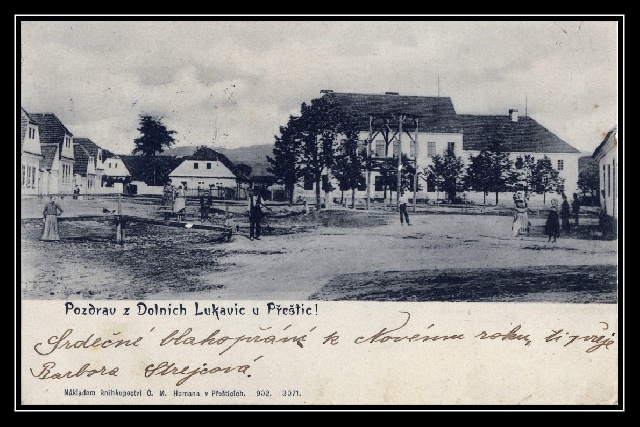 Pozdrav z Dolních Lukavic u Přeštic!
Srdečné blahopřání k Novému roku, ti přeje
Barbora Strejcová.
Nákladem knihkupectví C. M. Homana v Přešticích. 902. 3071.